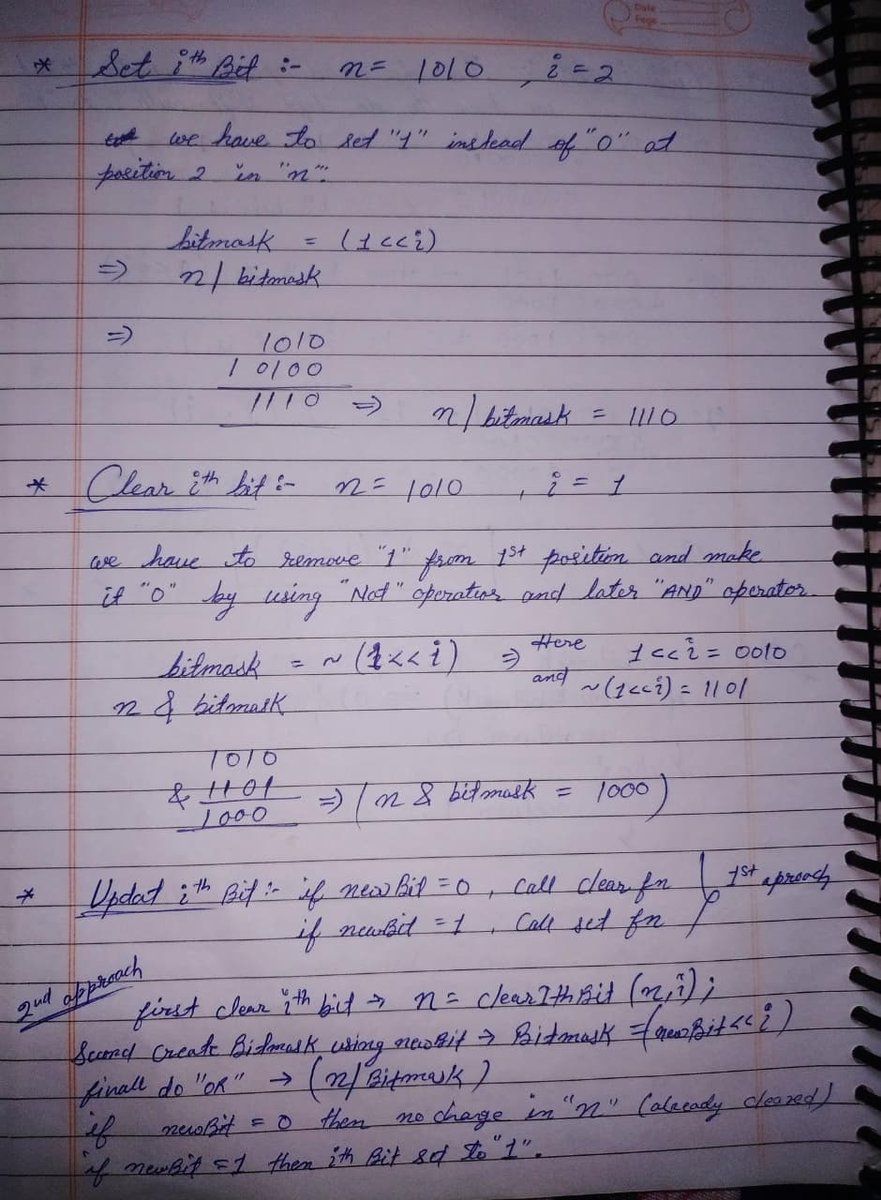 Date
Page
* Set ith Bit :- n = 1010 , i = 2
we have to set "1" instead of "0" at
position 2 in "n".
bitmask = (1<<i)
=> n | bitmask
=> 1010
| 0100
1110 => n | bitmask = 1110
* Clear ith bit :- n = 1010 , i = 1
we have to remove "1" from 1st position and make
it "0" by using "Not" operatior and later "AND" operator.
bitmask = ~(1<<i) => Here 1<<i = 0010
and ~(1<<i) = 1101
n & bitmask
1010
& 1101
1000 => (n & bitmask = 1000)
* Updat ith Bit :- if newBit = 0 , Call clear fn } 1st aproach
if newBit = 1 , Call set fn
2nd approach
first clear ith bit → n = clearIthBit (n,i);
Second Create Bitmask using newBit → Bitmask = (newBit<<i)
finall do "OR" → (n | Bitmask)
if newBit = 0 then no change in "n" (already cleared)
if newBit = 1 then ith Bit set to "1".